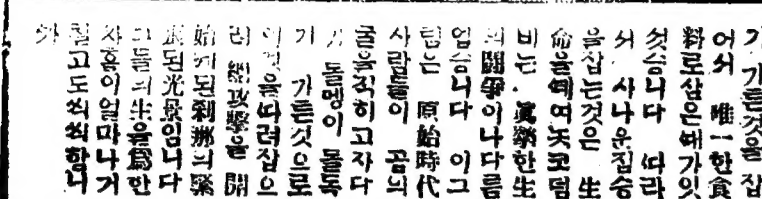 기 가튼것을 잡
어서 唯一한食
料로삼은때가잇
섯슴니다 따라
서 사나운짐승
을잡는것은 生
命을떼여노코덤
비는. 眞摯한生
의鬪爭이나다름
업슴니다 이그
림은 原始時代
사람들이 곰의
굴을직히고자다
가 돌멩이 돌독
기 가튼것으로
이것을따려잡으
려 總攻擊을 開
始케된刹那의緊
張된光景임니다
그들의生을爲한
싸홈이얼마나거
칠고도씩씩함니
까